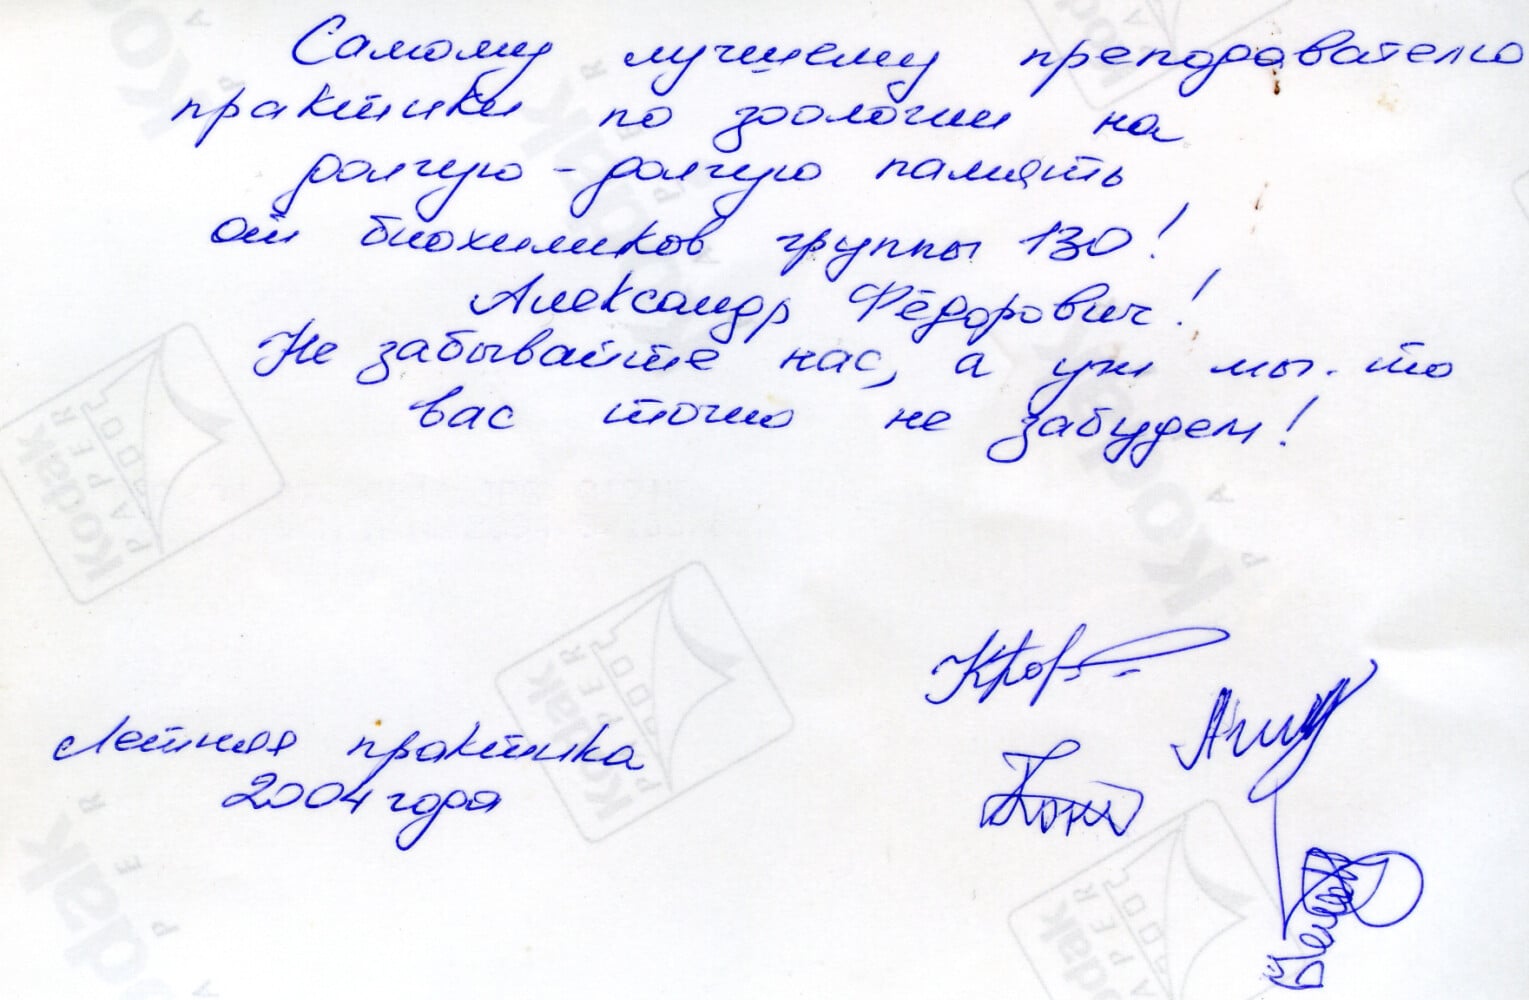 Самому лучшему преподавателю
практики по зоологии на
долгую-долгую память
от биохимиков группы 130!
Александр Фёдорович!
Не забывайте нас, а уж мы-то
вас точно не забудем!
Летняя практика
2004 года
Kodak
PAPER
Kodak
PAPER
Kodak